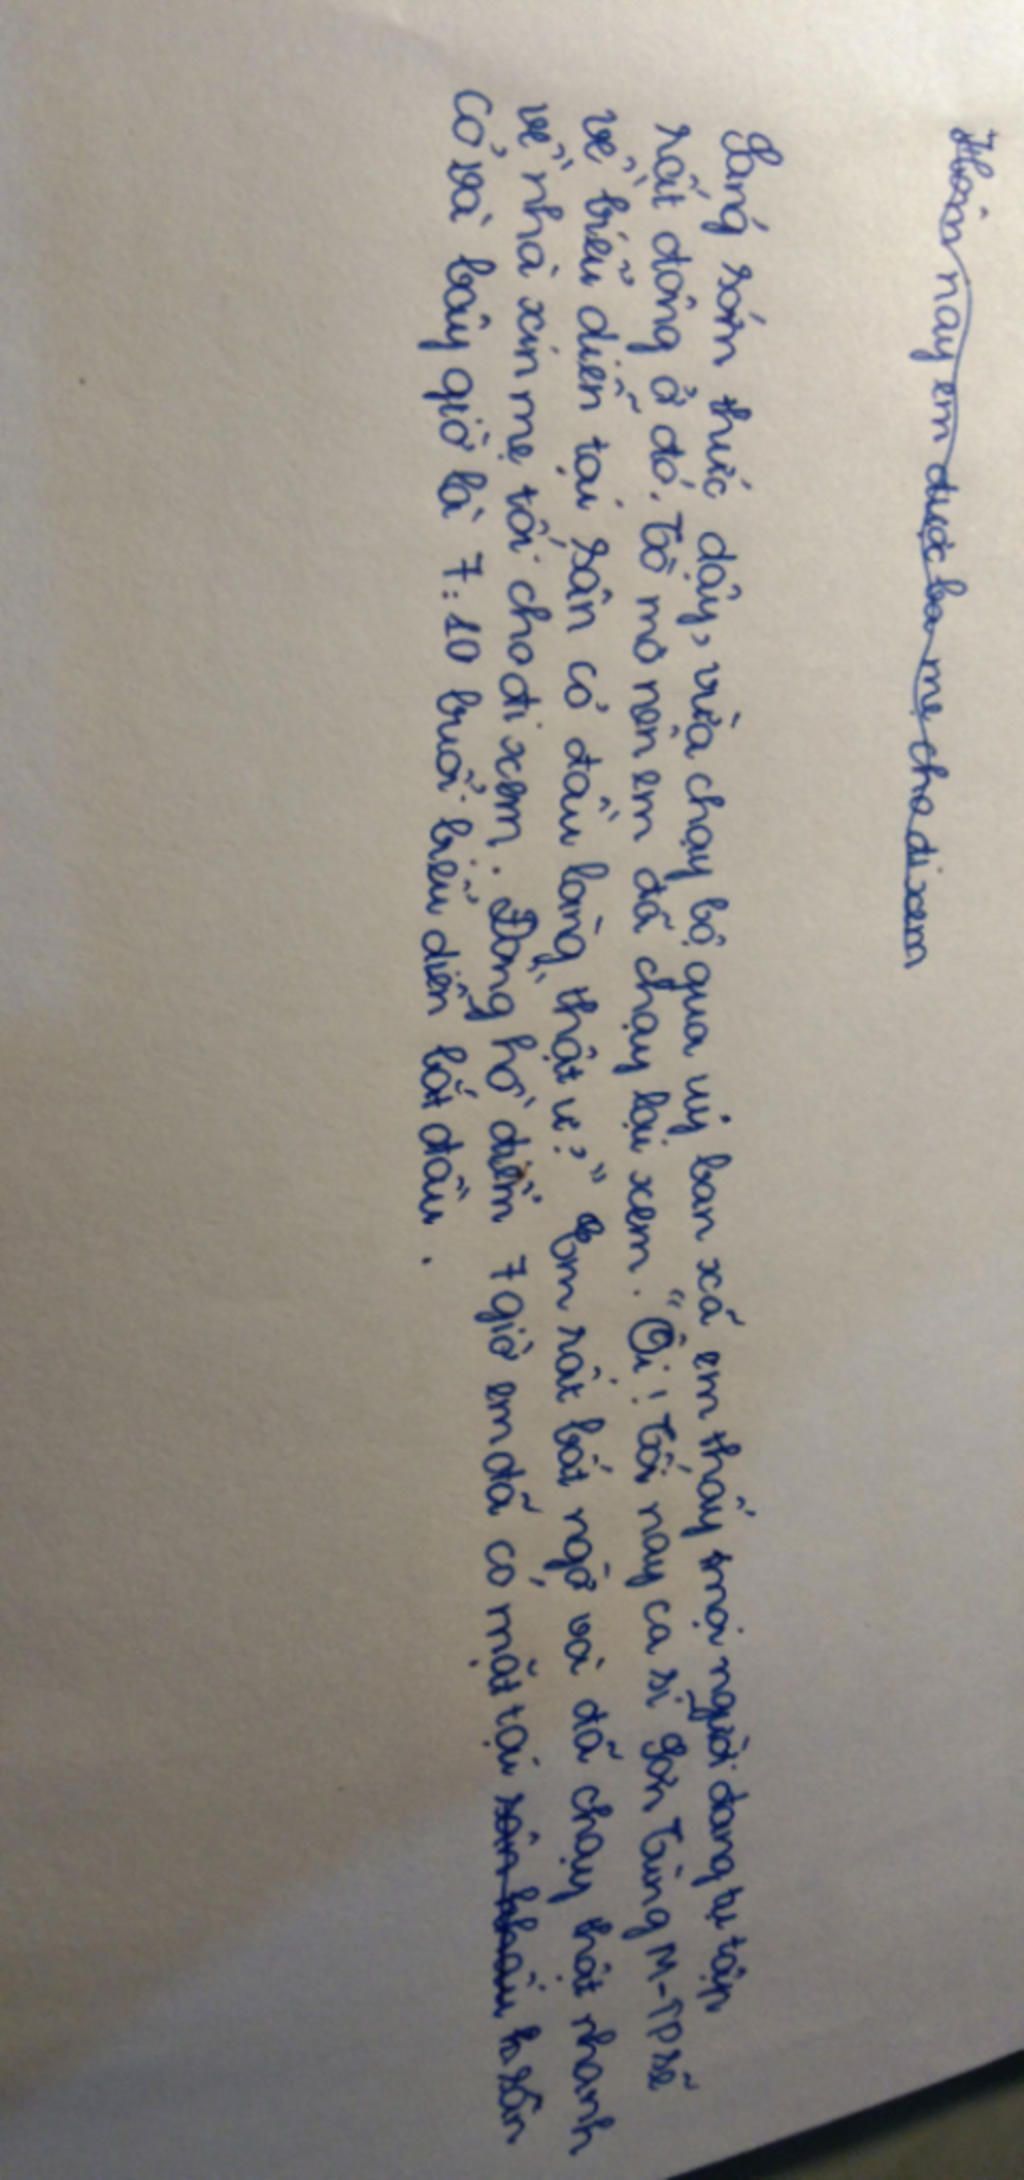 Hôm nay em được ba mẹ cho đi xem
Sáng sớm thức dậy, vừa chạy bộ qua uỷ ban xã em thấy mọi người đang tụ tập
rất đông ở đó. Tò mò nên em đã chạy lại xem. "Ôi! Tối nay ca sĩ Sơn Tùng M-TP sẽ
về biểu diễn tại sân cỏ đầu làng thật ư?" Em rất bất ngờ và đã chạy thật nhanh
về nhà xin mẹ tối cho đi xem. Đồng hồ điểm 7 giờ em đã có mặt tại sân
cỏ và bây giờ là 7:10 buổi biểu diễn bắt đầu.